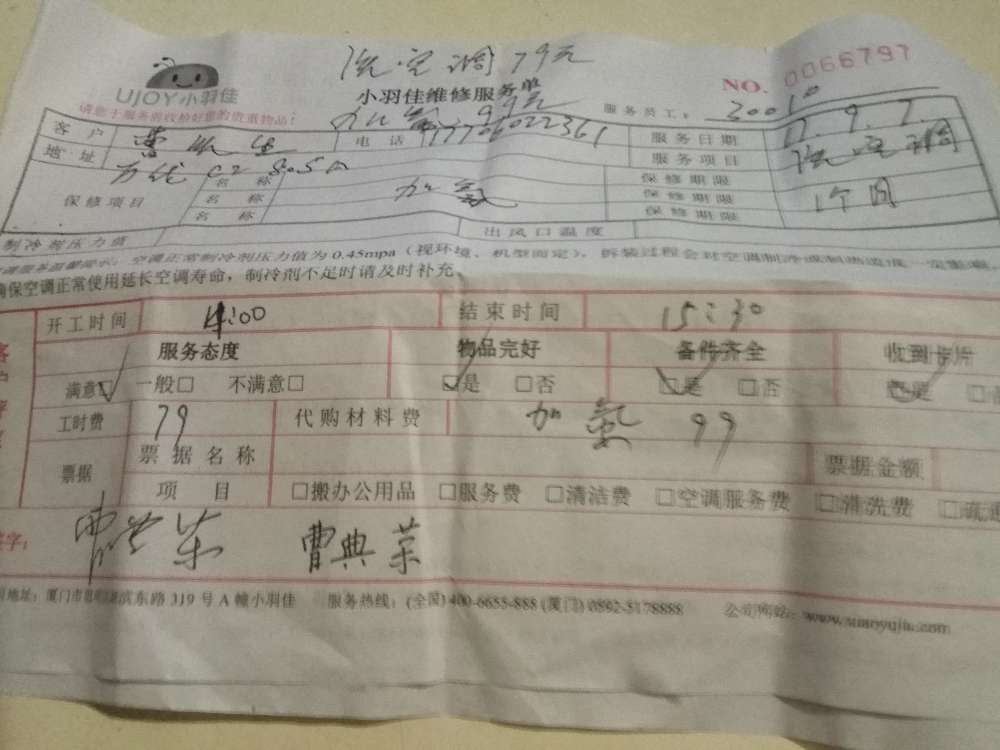 洗空调79元
UJOY小羽佳
小羽佳维修服务单
NO. 0066797
请您于服务前收拾好您的贵重物品！
加氟 99元
服务员工：
客户 电话 17706022361 服务日期 17.9.7.
地址 服务项目 洗空调
C2 805A
保修项目 名称 加氟 保修期限 1个月
名称 保修期限
名称 保修期限
制冷剂压力值 出风口温度
空调正常制冷剂压力值为 0.45mpa（视环境、机型而定），拆装过程会对空调制冷或制热造成一定影响，
确保空调正常使用延长空调寿命，制冷剂不足时请及时补充、
开工时间 14:00 结束时间 15:30
服务态度 物品完好 备件齐全 收到卡片
满意☑ 一般□ 不满意□ ☑是 □否 ☑是 □否 ☑是 □否
工时费 79 代购材料费 加氟 99
票据 票据名称 票据金额
项目 □搬办公用品 □服务费 □清洁费 □空调服务费 □清洗费
签字： 曹典荣 曹典荣
地址：厦门市思明区湖滨东路 319 号 A 幢小羽佳 服务热线：(全国) 400-6655-888 (厦门) 0592-5178888 公司网站：www.xiaoyujia.com